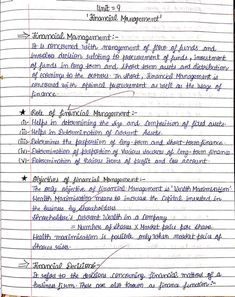 Unit = 9
"Financial Management"
⇒ Financial Management :-
It is concerned with management of flow of funds and
involves decision relating to procurement of funds, investment
of funds in long term and short term assets and distribution
of earnings to the owners. In short, Financial Management is
concerned with optimal procurement as well as the usage of
finance.
★ Role of financial Management :-
(i) Helps in determining the size and composition of fixed assets.
(ii) Helps in Determination of Current Assets.
(iii) Determines the proportion of long-term and short-term finance
(iv) Determination of proportion of various sources of long-term finance
(v) Determination of Various items of profit and loss account
★ Objectives of financial Management :-
The only objective of financial Management is 'Wealth Maximisation'.
Wealth Maximisation means to increase the Capital invested in
the business by shareholders
Shareholder's Current Wealth in a Company
= Number of shares × Market price per share
Wealth maximisation is possible only when market price of
shares rises.
⇒ Financial Decisions :-
It refers to the decisions concerning financial matters of a
business firm. These are also known as finance function :-